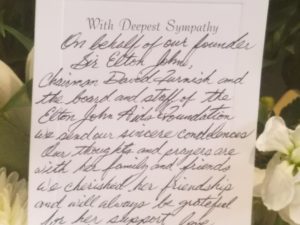 With Deepest Sympathy
On behalf of our founder
Sir Elton John,
Chairman David Furnish and
the board and staff of the
Elton John Aids Foundation
we send our sincere condolences
Our thoughts and prayers are
with her family and friends
we cherished her friendship
and will always be grateful
for her support love